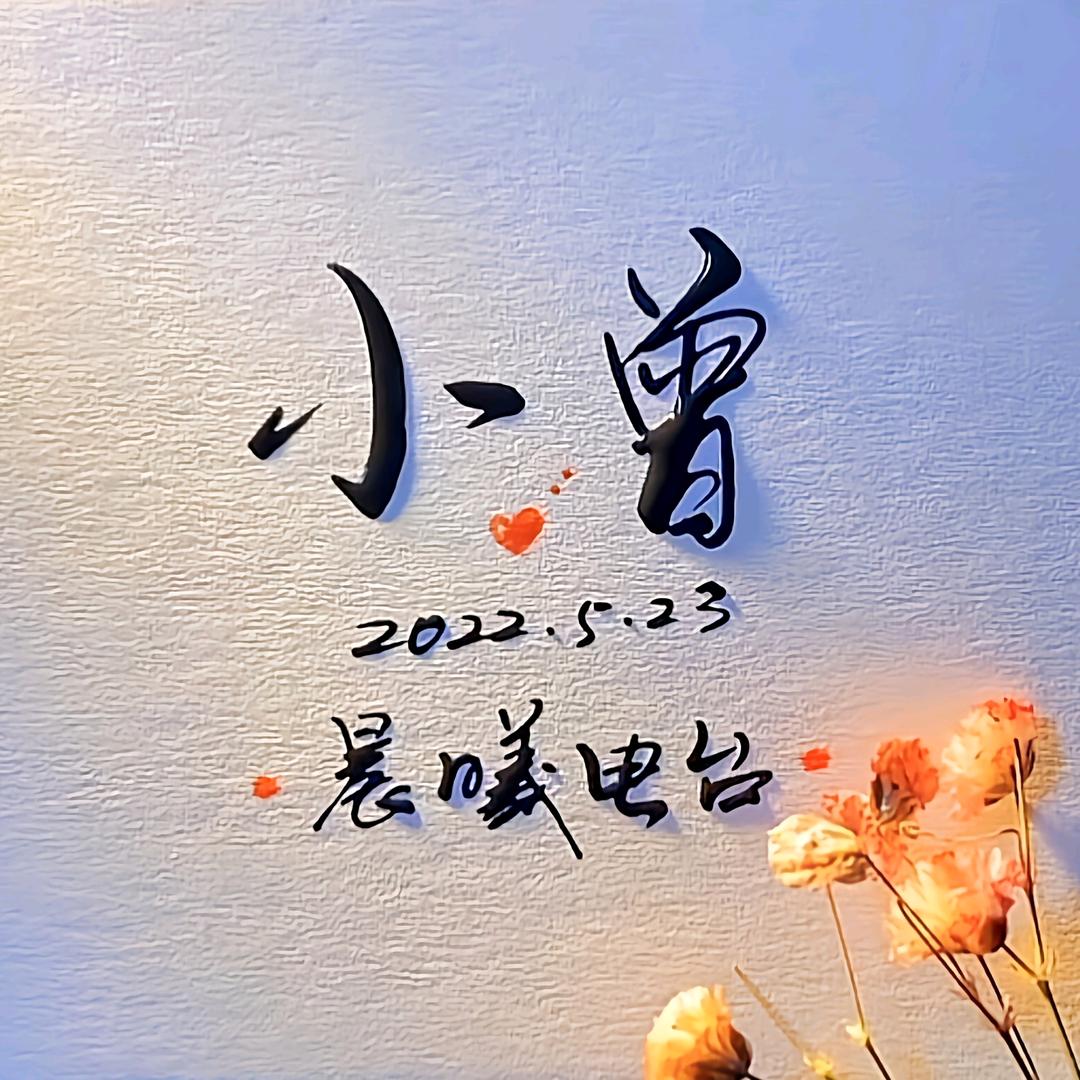 小曾
2022.5.23
晨曦电台